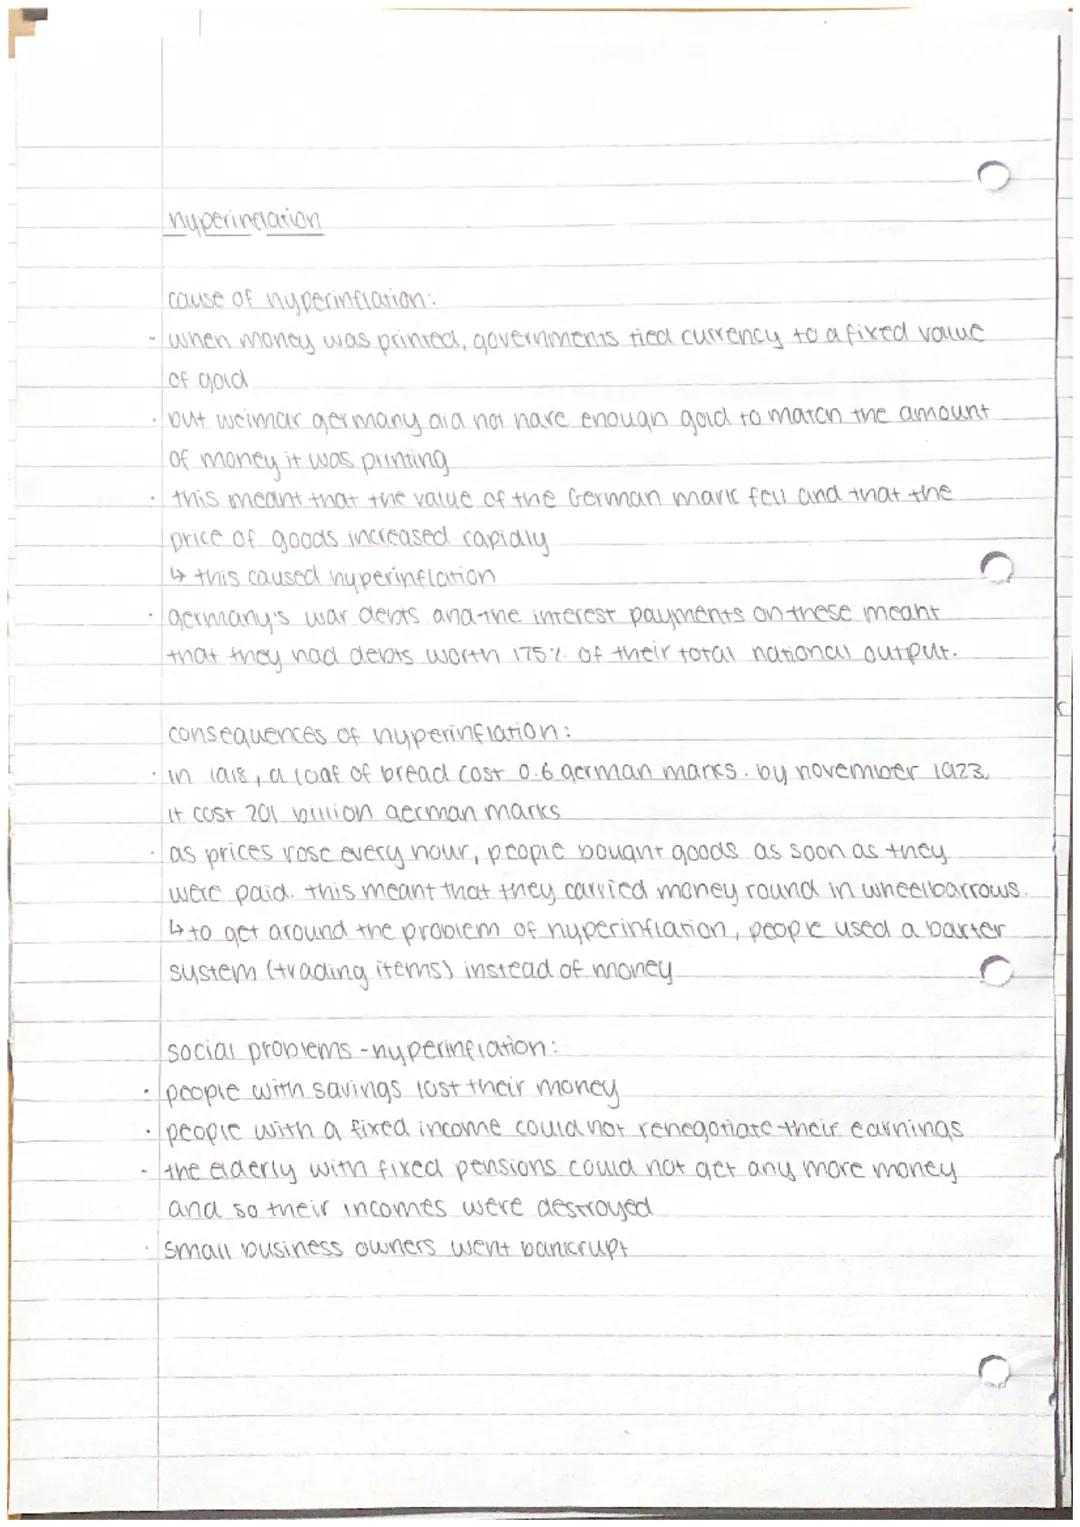 hyperinflation
cause of hyperinflation:
- when money was printed, governments tied currency to a fixed value
of gold
· but weimar germany did not have enough gold to match the amount
of money it was printing
· this meant that the value of the German mark fell and that the
price of goods increased rapidly
↳ this caused hyperinflation
· germany's war debts and the interest payments on these meant
that they had debts worth 175% of their total national output.
consequences of hyperinflation:
· in 1918, a loaf of bread cost 0.6 german marks. by november 1923,
it cost 201 billion german marks
· as prices rose every hour, people bought goods as soon as they
were paid. this meant that they carried money round in wheelbarrows.
↳ to get around the problem of hyperinflation, people used a barter
system (trading items) instead of money
social problems - hyperinflation:
· people with savings lost their money
· people with a fixed income could not renegotiate their earnings
- the elderly with fixed pensions could not get any more money
and so their incomes were destroyed
· small business owners went bankrupt